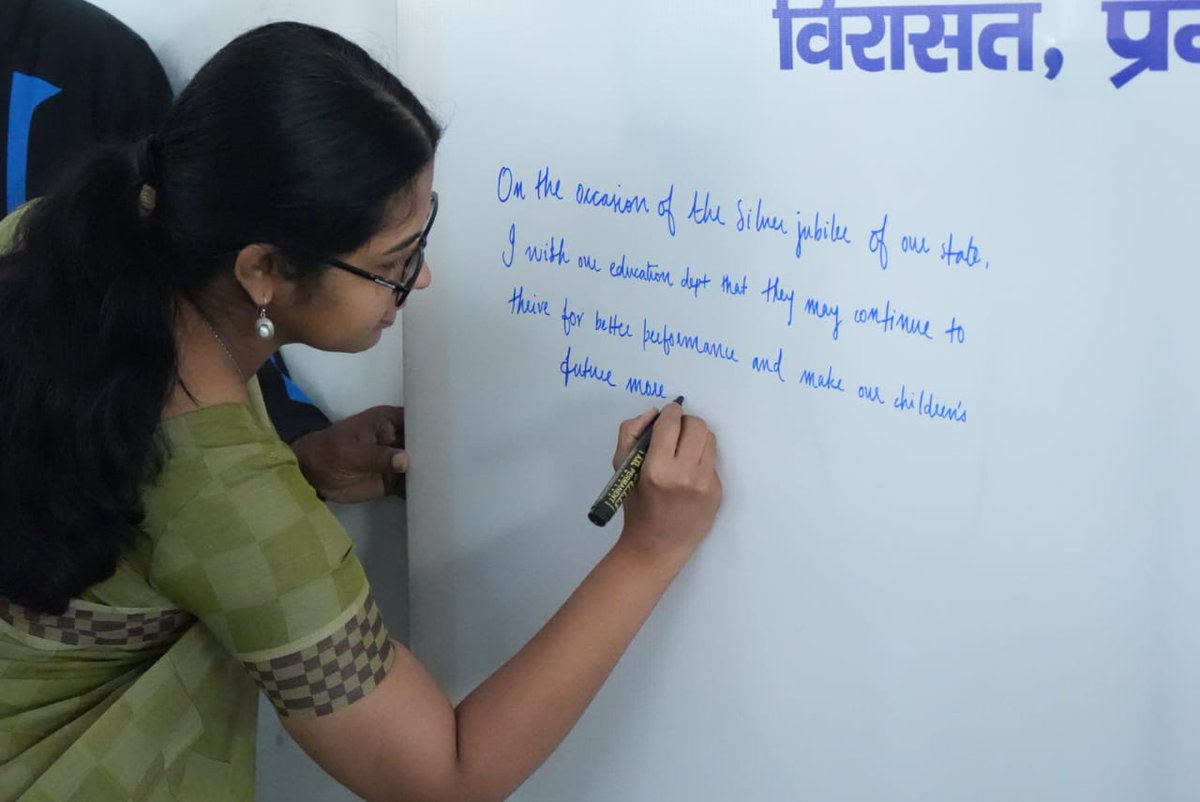 विरासत, प्र
On the occasion of the Silver jubilee of our state,
I wish our education dept that they may continue to
theive for better performance and make our children's
future more
PERMANENT